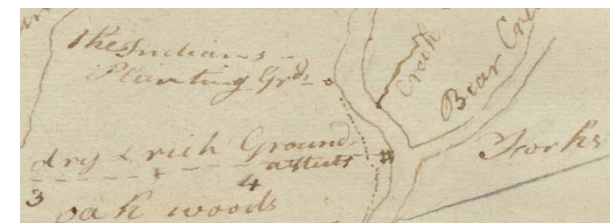 The Indians
Planting Grds
Creek
Bear Cre
dry & rich Ground
Forks
3
4
oak woods